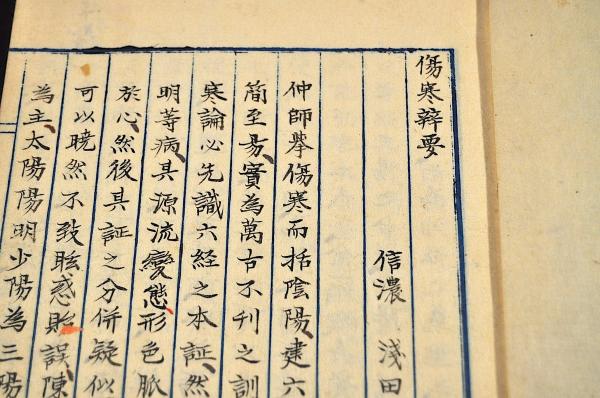 傷寒辨要
信濃 淺田
仲師擧傷寒而括陰陽、建六
簡至易、實為萬古不刊之訓
寒論必先識六経之本証、然
明等病、其源流變態形色脈
於心、然後其証之分併疑似
可以曉然不致眩惑貽誤、陳
為主、太陽陽明少陽為三陽